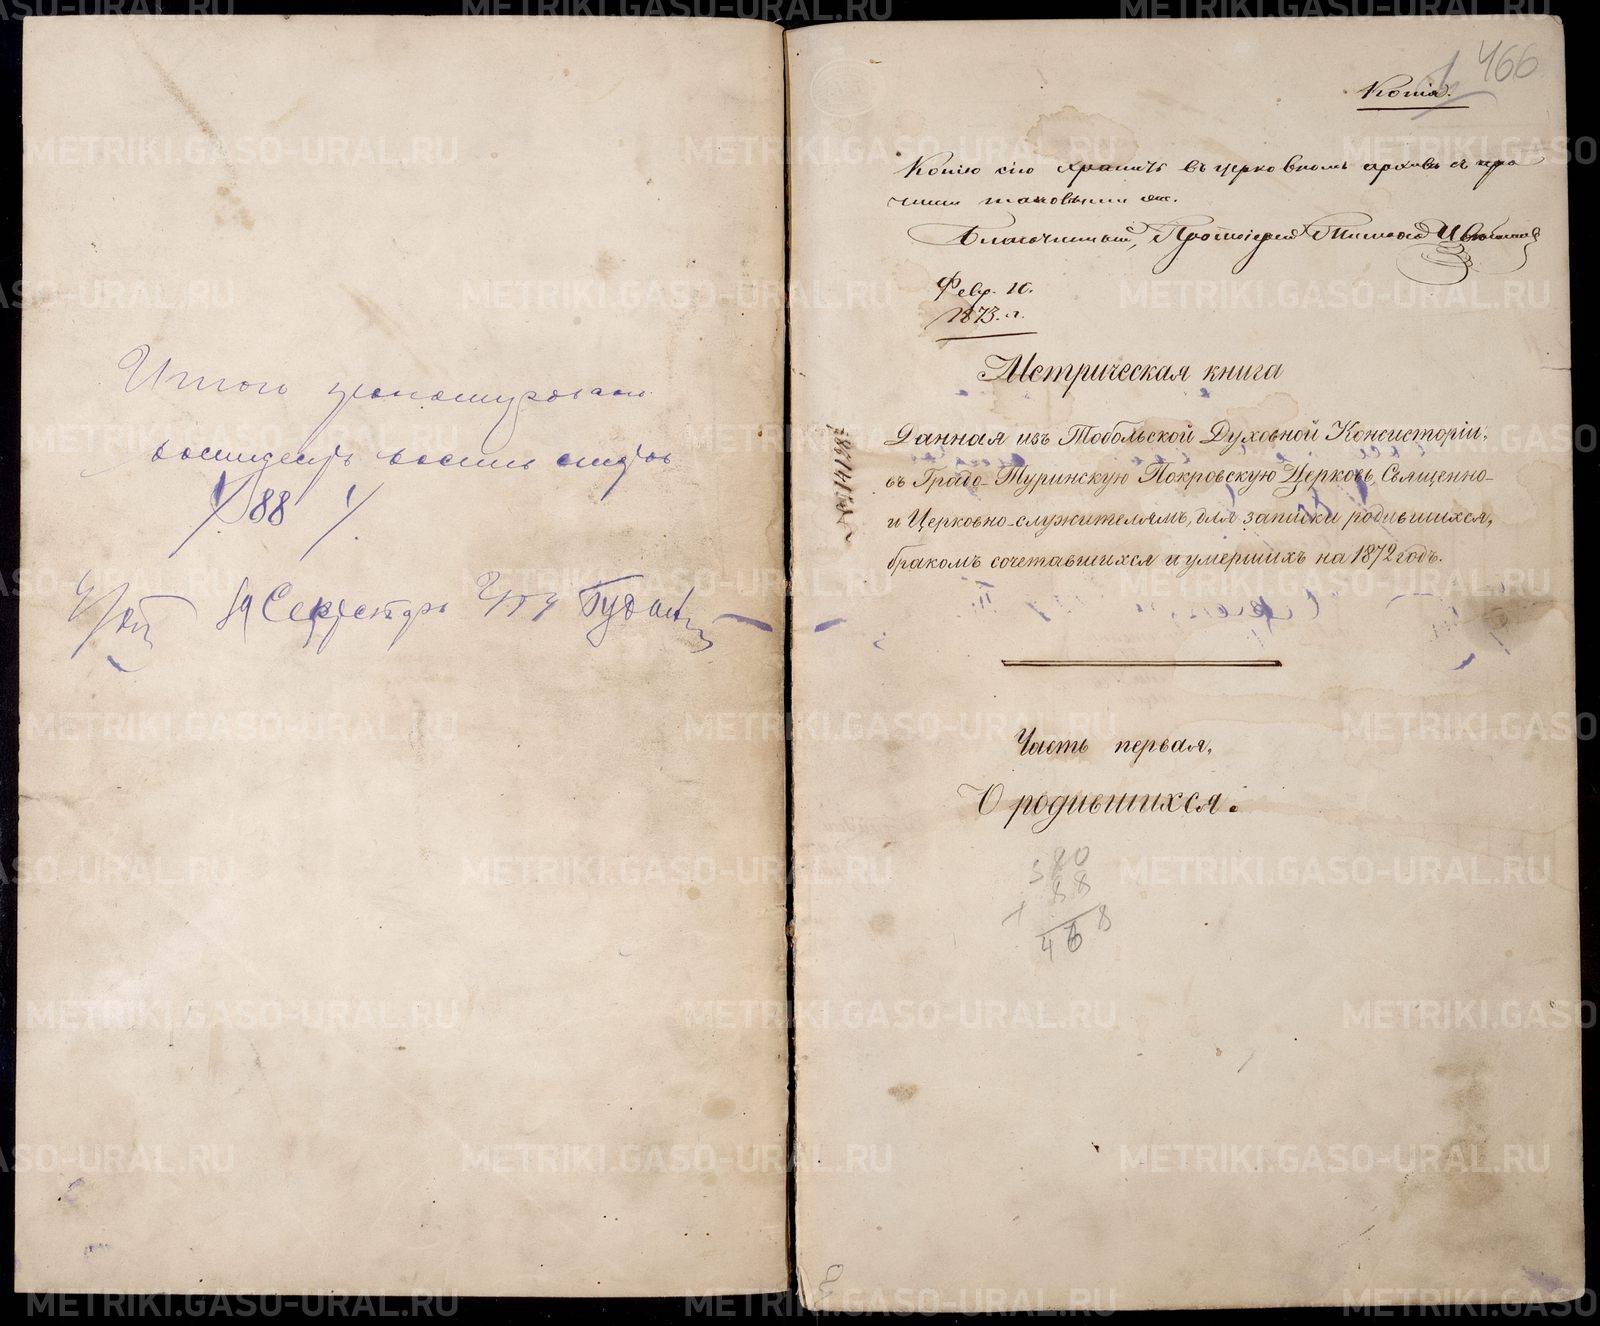 Итого пронумеровано
восемдесять восемь листов
/88/
Секретарь
466
Копія.
Копію сію хранить въ церковномъ архивѣ съ про
чими таковыми же.
Благочинный, Протоіерей
Февр. 10.
1873. г.
Метрическая книга
Данная изъ Тобольской Духовной Консисторіи,
въ Градо-Туринскую Покровскую Церковь, Священно-
и Церковно-служителямъ, для записки родившихся,
бракомъ сочетавшихся и умершихъ на 1872 годъ.
Часть первая,
О родившихся.
380
88
468
METRIKI.GASO-URAL.RU